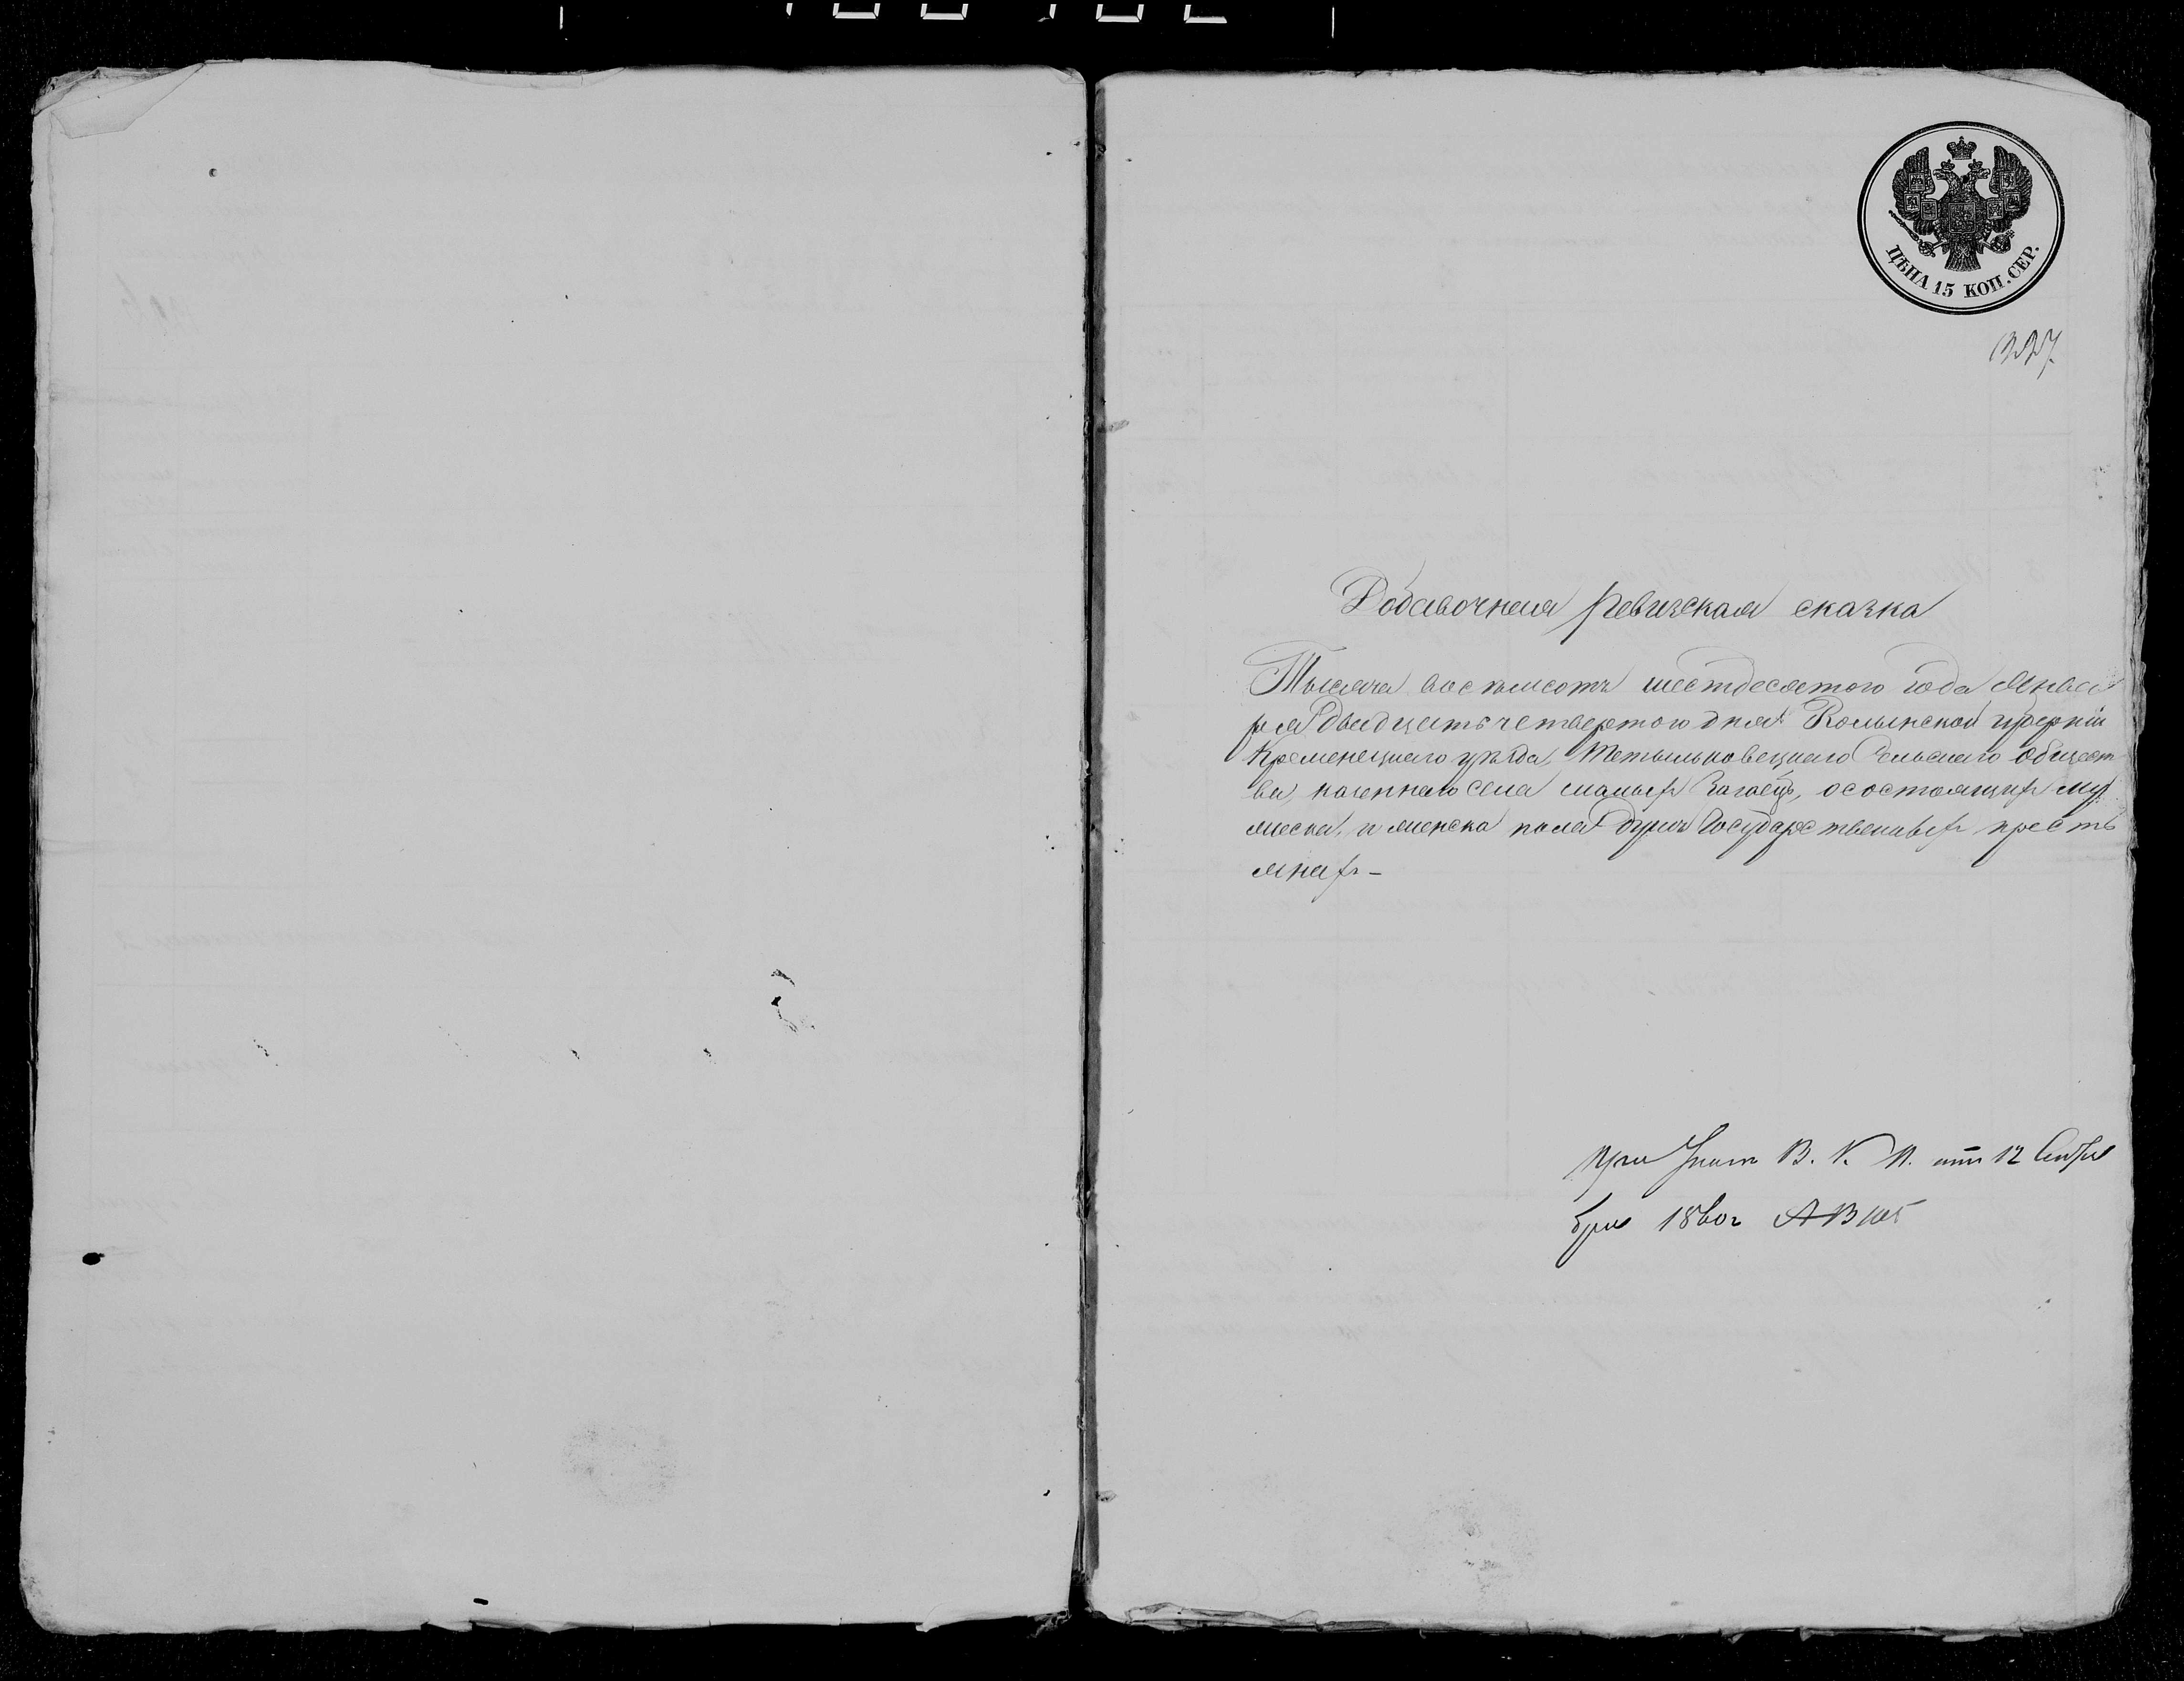 ЦѢНА 15 КОП. СЕР.
327.
Добавочная ревизская сказка
Тысяча восемьсотъ шестдесятого года Янва
ря двадцать четвертого дня Волынской губерніи
Кременецкаго уѣзда, Тетыльковецкаго Сельскаго Общест
ва, казеннаго села малыхъ Загаецъ, о состоящихъ муж
меска, и женска пола душъ Государственныхъ кресть
янахъ –
при В. К. П. отъ 12
бря 1860 г